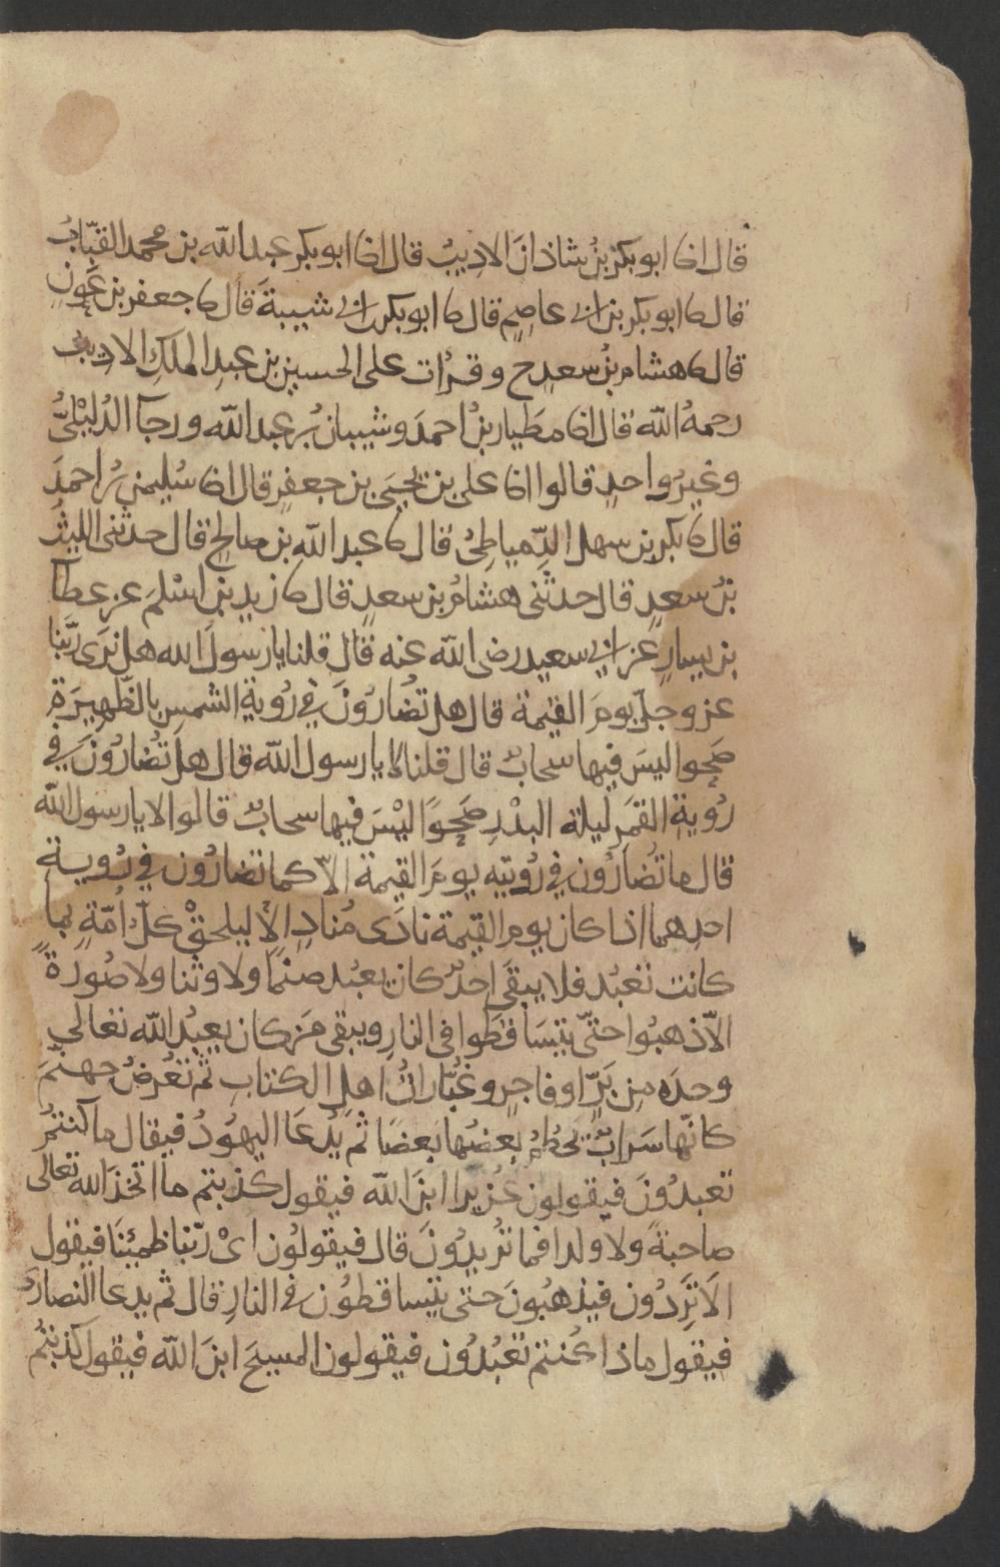 قال انا ابو بكر بنُ شاذانَ الاديبُ قال انا ابو بكر عبد الله بن محمد القبّابُ
قال نا ابو بكر بن ابي عاصمٍ قال نا ابو بكر بن ابي شيبةَ قال نا جعفر بن عَونٍ
قال نا هشام بنُ سعدٍ ح وقرأت على الحسين بن عبدِ الملكِ الاديب
رحمهُ الله قال انا مطيار بنُ احمدَ وشيبان بنُ عبد الله ورجآ الدُليْليُّ
وغيرُ واحدٍ قالوا انا علي بن يحيَى بن جعفرٍ قال انا سُليمن بنُ احمدَ
قال نا بكر بن سهل الدِّمياطِيُ قال نا عبد اللهِ بن صالحٍ قال حدثنى الليثُ
بنُ سعدٍ قال حدثنى هشامُ بن سعدٍ قال نا زيد بن اسْلمَ عن عطآ
بن يسارٍ عن ابي سعيد رضى الله عنه قال قلنا يا رسولَ الله هل نرَى ربَّنا
عز وجلّ يومَ القيمة قال هل تضُارّونَ في رُويةِ الشمسِ بالظّهِيرَةِ
صَحوا ليسَ فيها سحابٌ قال قلنا لا يا رسول الله قال هل تُضارُونَ في
رُويةِ القمَرِ ليلة البدْرِ صَحوًا ليْسَ فيها سحابٌ قالوا لا يا رسول الله
قال ما تُضارُون في رُويتِه يومَ القيمة الاّ كما تضارُون في رُوية
احدِهما اذا كان يوم القيمة نادَى مُنادٍ الاَ ليلحقْ كلّ اُمّةٍ بما
كانت تعبُد فلا يبقَى احدٌ كان يعبُد صنمًا ولا وثنا ولا صُورَةً
الاّ ذهبُوا حتّى يتسَاقطوا في النارِ ويبقى مَن كان يعبُد الله تعالى
وحدَه مِن بَرّ او فاجرٍ وغُبّرَاتُ اهلِ الكتابِ ثم تعْرضُ جهنّمُ
كانّها سَرابٌ يحطمُ بعضُها بعضًا ثم يُدعَا اليهُودُ فيقال ما كنتمُ
تعبدُونَ فيقولون عُزيرا ابنَ الله فيقول كذبتم ما اتخذَ الله تعالى
صاحبةً ولا ولدا فما تُريدُونَ قال فيقولُون اىْ ربّنا ظمِئنَا فيقول
الاَ تَرِدُون فيذهبُونَ حتى يتساقطوُن في النارِ قال ثم يدعا النصارَى
فيقول ماذا كُنتم تعْبُدُون فيقولون المسيحَ ابنَ الله فيقول كذبتُم